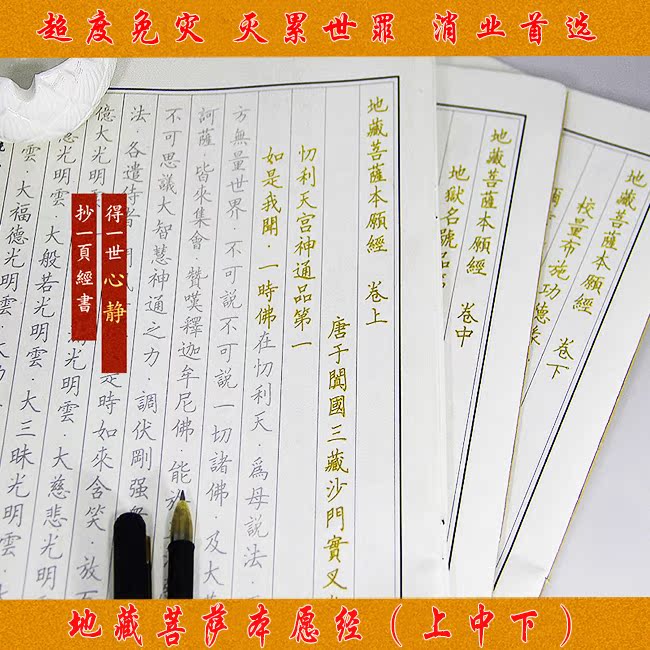 超度免灾 灭累世罪 消业首选
地藏菩薩本願經 卷下
校量布施功德緣
地藏菩薩本願經 卷中
地獄名號品
地藏菩薩本願經 卷上
唐于闐國三藏沙門實叉
忉利天宮神通品第一
如是我聞．一時佛在忉利天．為母說法．
方無量世界．不可說不可說一切諸佛．及大
訶薩．皆來集會．贊嘆釋迦牟尼佛．能
不可思議大智慧神通之力．調伏剛强
法．各遣侍者 是時如來含笑．放
億大光明雲 光明雲．大慈悲光明
光明雲．大般若光明雲．大三昧光明雲．
雲．大福德光明雲．
得一世心静
抄一頁經書
地藏菩萨本愿经（上中下）